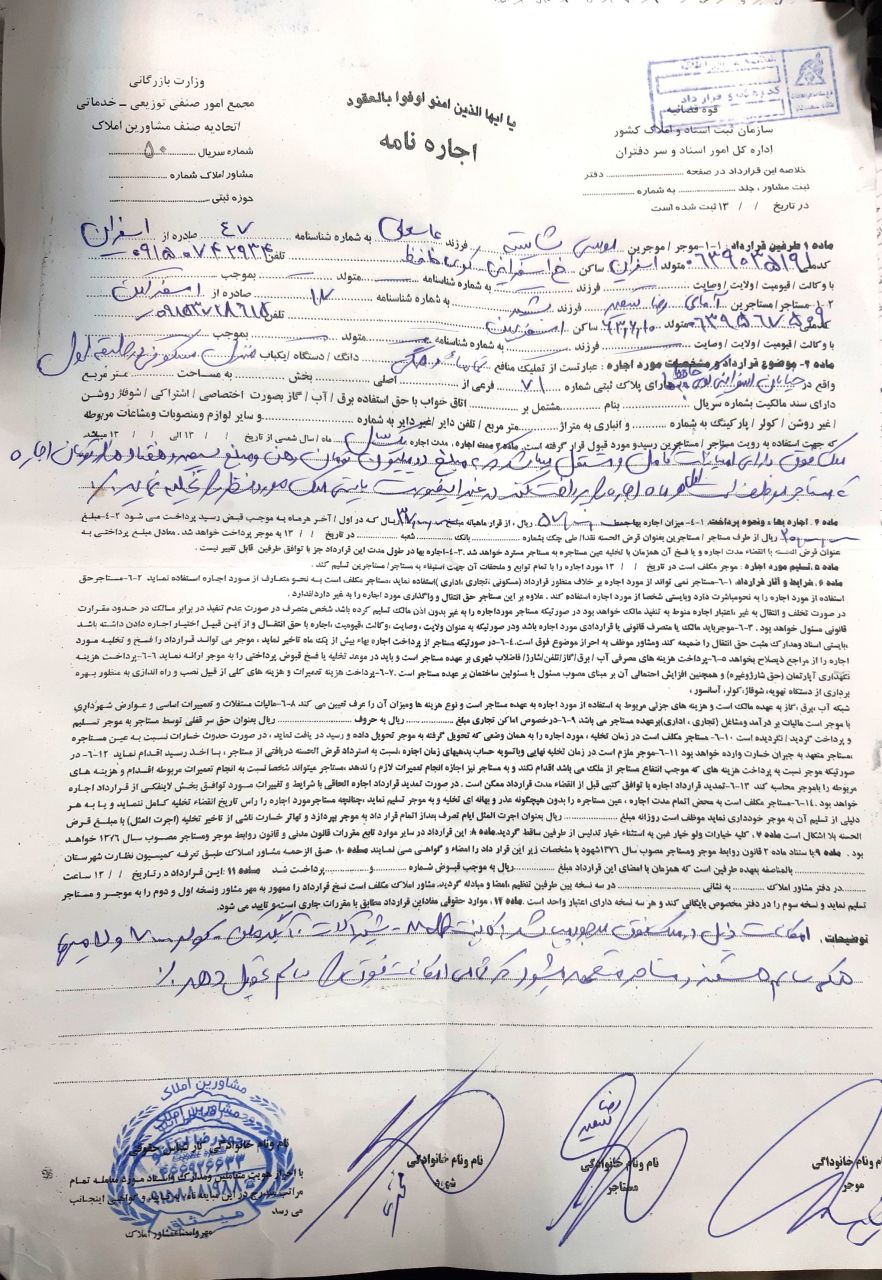 وزارت بازرگانی
مجمع امور صنفی توزیعی - خدماتی
اتحادیه صنف مشاورین املاک
شماره سریال ۵۰
مشاور املاک شماره
حوزه ثبتی
یا ایها الذین امنو اوفوا بالعقود
اجاره نامه
قوه قضائیه
سازمان ثبت اسناد و املاک کشور
اداره کل امور اسناد و سر دفتران
خلاصه این قرارداد در صفحه دفتر
ثبت مشاور، جلد به شماره
در تاریخ / / ۱۳ ثبت شده است
ماده ۱ طرفین قرارداد ۱-۱- موجر / موجرین موسی فرزند به شماره شناسنامه ۴۷ صادره از اسفراین
کدملی متولد اسفراین ساکن خ اسفراین تلفن
با وکالت / قیومیت / ولایت / وصایت فرزند به شماره شناسنامه متولد بموجب
۱-۲ مستاجر / مستاجرین آقای رضا سعید فرزند به شماره شناسنامه ۱۰۷ صادره از اسفراین
کدملی متولد ساکن اسفراین تلفن
با وکالت / قیومیت / ولایت / وصایت فرزند به شماره شناسنامه متولد بموجب
ماده ۲- موضوع قرارداد و مشخصات مورد اجاره : عبارتست از تملیک منافع دانگ / دستگاه / یکباب منزل مسکونی طبقه اول
واقع در خیابان دارای پلاک ثبتی شماره ۷۱ فرعی از اصلی بخش به مساحت متر مربع
دارای سند مالکیت بشماره سریال بنام مشتمل بر اتاق خواب با حق استفاده برق / آب / گاز بصورت اختصاصی / اشتراکی / شوفاژ روشن
/ غیر روشن / کولر / پارکینگ به شماره و انباری به متراژ متر مربع / تلفن دایر / غیر دایر به شماره و سایر لوازم و منصوبات و مشاعات مربوطه
که جهت استفاده به رویت مستاجر / مستاجرین رسیده و مورد قبول قرار گرفته است. ماده ۳ مدت اجاره ، مدت اجاره یکسال ماه / سال شمسی از تاریخ / / ۱۳ الی / / ۱۳ میباشد
ملک فوق دارای امتیازات کامل و مستقل میباشد مبلغ تومان رهن و مبلغ سیصد و هفتاد هزار تومان اجاره
که مستاجر موظف است ماه اجاره را پرداخت کند در غیر اینصورت بایستی ملک مورد نظر را تخلیه نماید ٪
ماده ۴ . اجاره بها و نحوه پرداخت. ۱-۴- میزان اجاره بها جمعا ریال ، از قرار ماهیانه مبلغ ریال که در اول / آخر هر ماه به موجب قبض رسید پرداخت می شود ۲-۴-مبلغ
ریال از طرف مستاجر / مستاجرین بعنوان قرض الحسنه نقدا / طی چک بشماره بانک شعبه در تاریخ / / ۱۳ به موجر پرداخت شد. معادل مبلغ پرداختی به
عنوان قرض الحسنه با انقضاء مدت اجاره و یا فسخ آن همزمان با تخلیه عین مستاجره به مستاجر مسترد خواهد شد. ۳-۴-اجاره بها در طول مدت این قرارداد جز با توافق طرفین قابل تغییر نیست .
ماده ۵.تسلیم مورد اجاره : موجر مکلف است در تاریخ / / ۱۳ مورد اجاره را با تمام توابع و ملحقات آن جهت استیفاء به مستاجر / مستاجرین تسلیم کند .
ماده ۶ . شرایط و آثار قرارداد. ۱-۶-مستاجر نمی تواند از مورد اجاره بر خلاف منظور قرارداد (مسکونی ،تجاری ،اداری )استفاده نماید ،مستاجر مکلف است به نحو متعارف از مورد اجاره استفاده نماید ۲-۶-مستاجر حق
استفاده از مورد اجاره را به نحو مباشرت دارد وبایستی شخصا از مورد اجاره استفاده کند . علاوه بر این مستاجر حق انتقال و واگذاری مورد اجاره را به غیر دارد/ندارد.
در صورت تخلف و انتقال به غیر ،اعتبار اجاره منوط به تنفیذ مالک خواهد بود در صورتیکه مستاجر مورد اجاره را به غیر بدون اذن مالک تسلیم کرده باشد شخص متصرف در صورت عدم تنفیذ در برابر مالک در حدود مقررات
قانونی مسئول خواهد بود . ۳-۶-موجر باید مالک یا متصرف قانونی یا قراردادی مورد اجاره باشد ودر صورتیکه به عنوان ولایت ،وصایت ،وکالت، قیومیت ،اجاره با حق انتقال و از این قبیل اختیار اجاره دادن داشته باشد
،بایستی اسناد ومدارک مثبت حق انتقال را ضمیمه کند ومشاور موظف به احراز موضوع فوق است.۴-۶-در صورتیکه مستاجر از پرداخت اجاره بهاء بیش از یک ماه تاخیر نماید ، موجر می تواند قرارداد را فسخ و تخلیه مورد
اجاره را از مراجع ذیصلاح بخواهد ۵-۶-پرداخت هزینه های مصرفی آب / برق/گاز/تلفن/شارژ/ فاضلاب شهری بر عهده مستاجر است و باید در موعد تخلیه یا فسخ قبوض پرداختی را به موجر ارائه نماید ۶-۶-پرداخت هزینه
نگهداری آپارتمان (حق شارژ وغیره) و همچنین افزایش احتمالی آن بر مبنای مصوب مسئول یا مسئولین ساختمان بر عهده مستاجر است ۷-۶-پرداخت هزینه تعمیرات و هزینه های کلی از قبیل نصب و راه اندازی به منظور بهره
برداری از دستگاه تهویه، شوفاژ، کولر، آسانسور ،
شبکه آب ،برق، گاز به عهده مالک است و هزینه های جزئی مربوط به استفاده از مورد اجاره به عهده مستاجر است و نوع هزینه ها ومیزان آن را عرف تعیین می کند ۸-۶-مالیات مستغلات و تعمیرات اساسی و عوارض شهرداری
با موجر است مالیات بر درآمد ومشاغل (تجاری ، اداری)بر عهده مستاجر می باشد ۹-۶-درخصوص اماکن تجاری مبلغ ریال به حروف ریال بعنوان حق سر قفلی توسط مستاجر به موجر تسلیم
و پرداخت گردید / نگردیده است ۱۰-۶-مستاجر مکلف است در زمان تخلیه ، مورد اجاره را به همان وضعی که تحویل گرفته به موجر تحویل داده و رسید دریافت نماید ، در صورت حدوث خسارات نسبت به عین مستاجره
،مستاجر متعهد به جبران خسارت وارده خواهد بود ۱۱-۶-موجر ملزم است در زمان تخلیه نهایی وباتسویه حساب بدهیهای زمان اجاره ،نسبت به استرداد قرض الحسنه دریافتی از مستاجر ، با اخذ رسید اقدام نماید ۱۲-۶-در
صورتیکه موجر نسبت به پرداخت هزینه های که موجب انتفاع مستاجر از ملک می باشد اقدام نکند و به مستاجر نیز اجازه انجام تعمیرات لازم را ندهد ،مستاجر میتواند شخصا نسبت به انجام تعمیرات مربوطه اقدام و هزینه های
مربوطه را با موجر محاسبه کند ۱۳-۶-تمدید قرارداد اجاره با توافق کتبی قبل از انقضاء مدت قرارداد ممکن است . در صورت تمدید قرارداد اجاره الحاقی با شرایط و تغییرات مورد توافق بخش لاینفکی از قرارداد اجاره
خواهد بود . ۱۴-۶-مستاجر مکلف است به محض اتمام مدت اجاره ، عین مستاجره را بدون هیچگونه عذر و بهانه ای تخلیه و به موجر تسلیم نماید ،چنانچه مستاجر مورد اجاره را راس تاریخ انقضاء تخلیه کامل ننماید و یا به هر
دلیلی از تسلیم آن به موجر خودداری نماید موظف است روزانه مبلغ ریال بعنوان اجرت المثل ایام تصرف بعد از اتمام قرار داد به موجر بپردازد و تهاتر خسارت ناشی از تاخیر تخلیه (اجرت المثل) با مبلغ قرض
الحسنه بلا اشکال است ماده ۷. کلیه خیارات ولو خیار غبن به استثناء خیار تدلیس از طرفین ساقط گردید. ماده ۸: این قرارداد در سایر موارد تابع مقررات قانون مدنی و قانون روابط موجر ومستاجر مصوب سال ۱۳۷۶ خواهد
بود . ماده ۹ با ستناد ماده ۲ قانون روابط موجر ومستاجر مصوب سال ۱۳۷۶ شهود با مشخصات زیر این قرار داد را امضاء و گواهی می نمایند ماده ۱۰. حق الزحمه مشاور املاک طبق تعرفه کمیسیون نظارت شهرستان
بالمناصفه بعهده طرفین است که همزمان با امضای این قرارداد مبلغ ریال به موجب قبوض شماره و پرداخت شد ماده ۱۱ این قرارداد در تاریخ / / ۱۳ ساعت
در دفتر مشاور املاک به نشانی در سه نسخه بین طرفین تنظیم، امضا و مبادله گردید. مشاور املاک مکلف است نسخ قرارداد را ممهور به مهر مشاور ونسخه اول و دوم را به موجر و مستاجر
تسلیم نماید و نسخه سوم را در دفتر مخصوص بایگانی کند و هر سه نسخه دارای اعتبار واحد است. ماده ۱۲ ، موارد حقوقی مفاد این قرارداد مطابق با مقررات جاری است و تایید می شود.
توضیحات ، امکانات ذیل در ملک فوق میباشد کابینت شیرآلات - آبگرمکن - کولر
همگی سالم هستند و مستاجر متعهد میشود که تمامی امکانات فوق را سالم تحویل دهد ٪
نام ونام خانوادگی
موجر
نام ونام خانوادگی
مستاجر
رضا سعید
نام ونام خانوادگی
شهود
نام ونام خانوادگی کارشناس حقوقی
با احراز هویت متعاملین ومدارک واسناد مورد معامله تمام
می رسد
مهر وامضاء مشاور املاک
مشاورین املاک